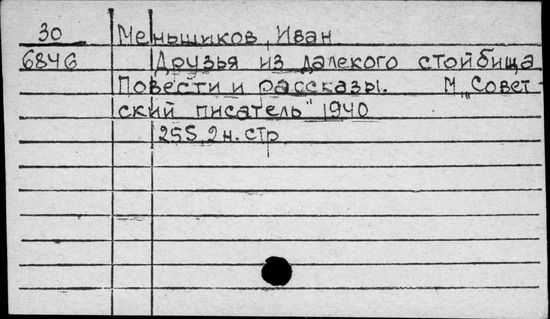 30 Меньщиков, Иван
6846 Друзья из далекого стойбища
Повести и рассказы. М. „Совет-
ский писатель" 1940
255, 2 н. стр